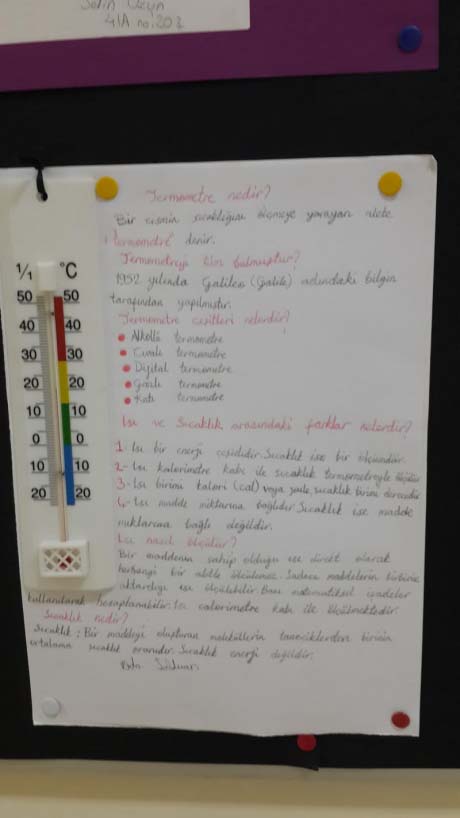 Selin Uzun
4/A no:202
Termometre nedir?
Bir cismin sıcaklığını ölçmeye yarayan alete
"Termometre" denir.
Termometreyi kim bulmuştur?
1952 yılında Galileo (Galile) adındaki bilgin
tarafından yapılmıştır.
Termometre çeşitleri nelerdir?
Alkollü termometre
Cıvalı termometre
Dijital termometre
Gazlı termometre
Katı termometre
Isı ve Sıcaklık arasındaki farklar nelerdir?
1- Isı bir enerji çeşididir. Sıcaklık ise bir ölçümdür.
2- Isı kalorimetre kabı ile sıcaklık termometreyle ölçülür
3- Isı birimi kalori (cal) veya joule, sıcaklık birimi derecedir.
4- Isı madde miktarına bağlıdır. Sıcaklık ise madde
miktarına bağlı değildir.
Isı nasıl ölçülür?
Bir maddenin sahip olduğu ısı direkt olarak
herhangi bir aletle ölçülemez. Sadece maddelerin birbirine
aktardığı ısı ölçülebilir. Bazı matematiksel ifadeler
kullanılarak hesaplanabilir. Isı calorimetre kabı ile ölçülmektedir.
Sıcaklık nedir?
Sıcaklık: Bir maddeyi oluşturan moleküllerin taneciklerden birinin
ortalama sıcaklık oranıdır. Sıcaklık enerji değildir.
1/1 °C
50 50
40 40
30 30
20 20
10 10
0 0
10 10
20 20